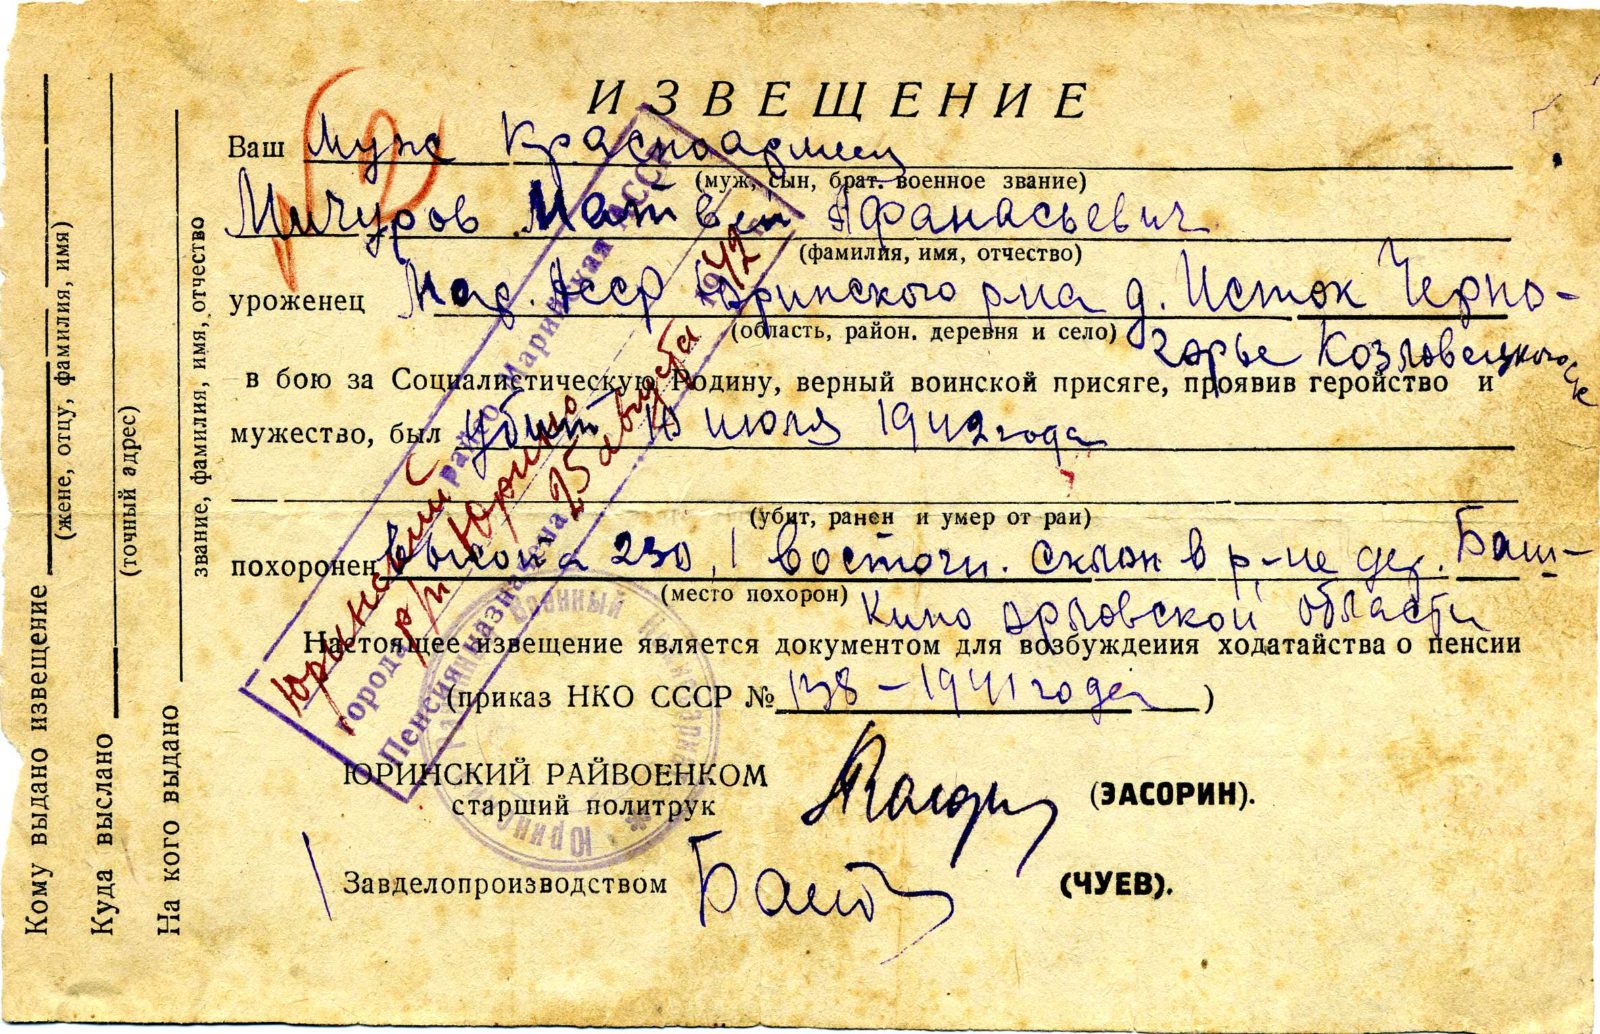 ИЗВЕЩЕНИЕ
Ваш Муж Красноармеец
(муж, сын, брат. военное звание)
Мичуров Матвей Афанасьевич
(фамилия, имя, отчество)
уроженец Мар. Асср Юринского р-на д. Исток Черно-
(область, район, деревня и село)
горье Козловецкого с/с
в бою за Социалистическую Родину, верный воинской присяге, проявив геройство и
мужество, был Убит 10 июля 1942 года
(убит, ранен и умер от ран)
похоронен высота 230,1 восточн. склон в р-не дер. Баш-
(место похорон)
кино Орловской области
Настоящее извещение является документом для возбуждения ходатайства о пенсии
(приказ НКО СССР № 138 – 1941 года )
ЮРИНСКИЙ РАЙВОЕНКОМ
старший политрук
(ЗАСОРИН).
Завделопроизводством
(ЧУЕВ).
Кому выдано извещение
(жене, отцу, фамилия, имя)
Куда выслано
(точный адрес)
На кого выдано
звание, фамилия, имя, отчество
Юринский райсо Марийская АССР
города р/п Юрино
Пенсия назначена 25 августа 1942
Военный Комиссариат Юрин